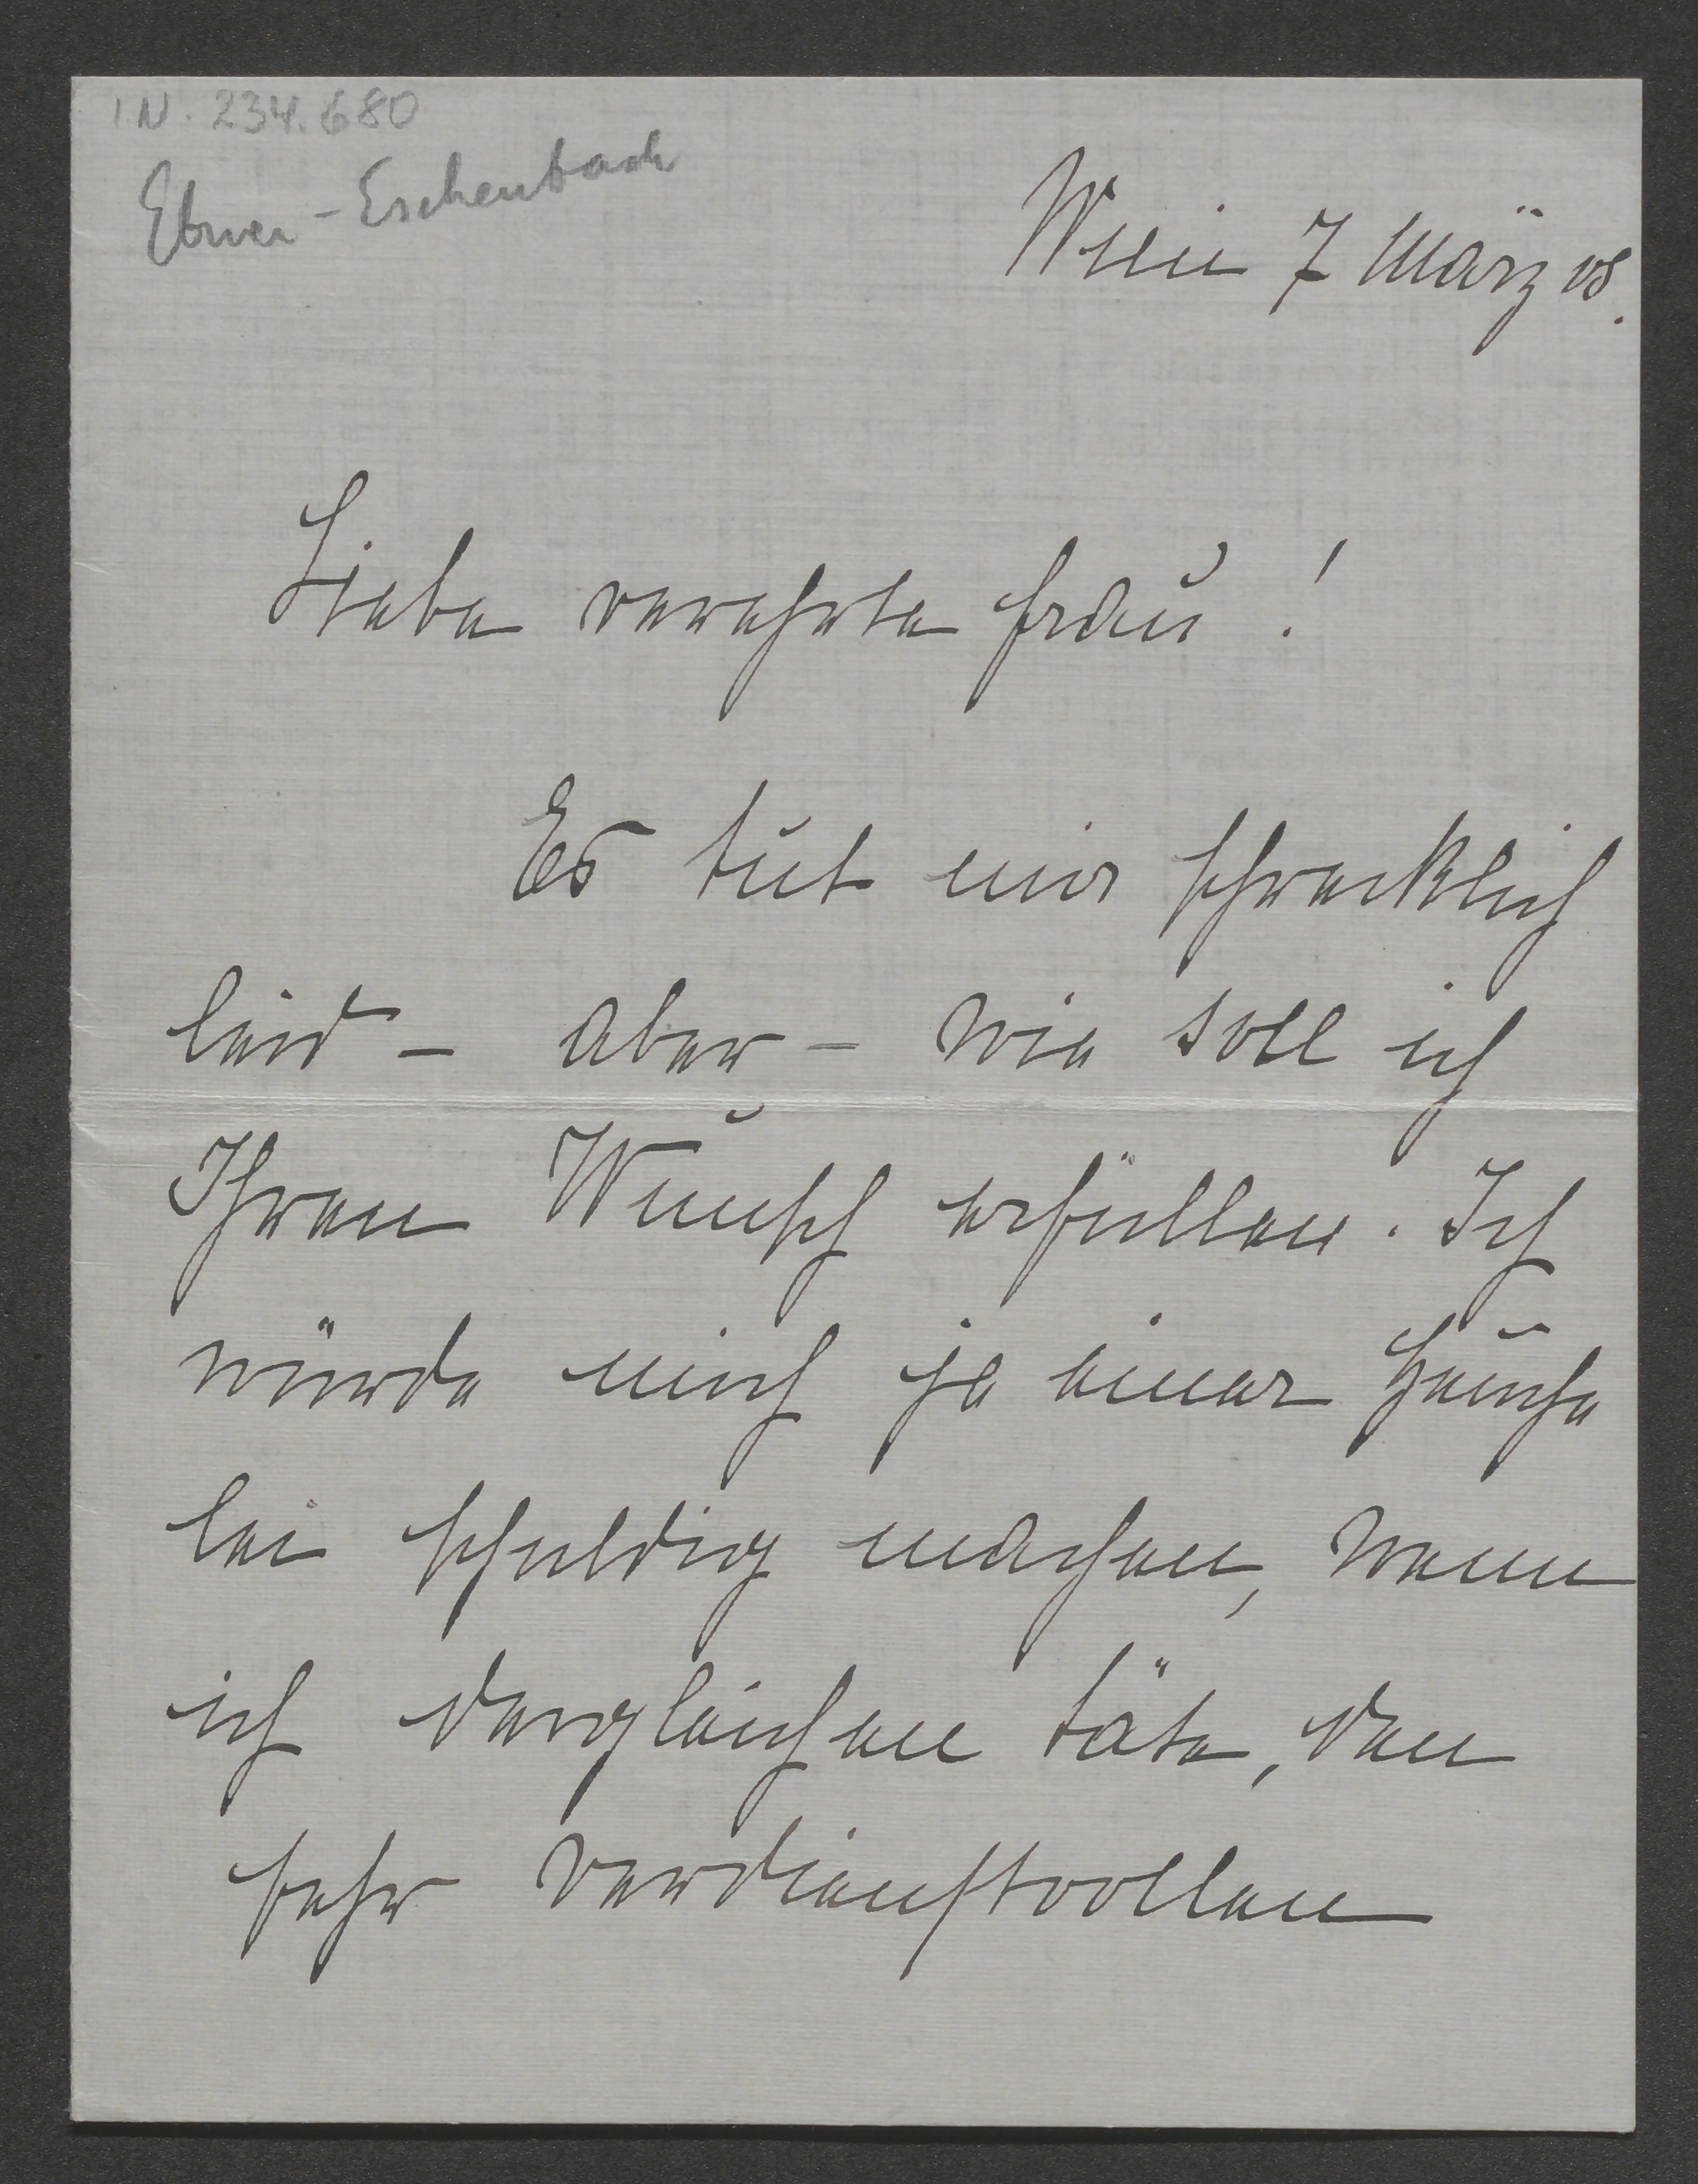 IN. 234.680
Ebner-Eschenbach
Wien 7 März 08.
Liebe verehrte Frau !
Es tut mir schrecklich
leid – aber – wie soll ich
Ihren Wunsch erfüllen. Ich
würde mich ja einer Heuche
lei schuldig machen, wenn
ich dergleichen täte, den
sehr verdienstvollen